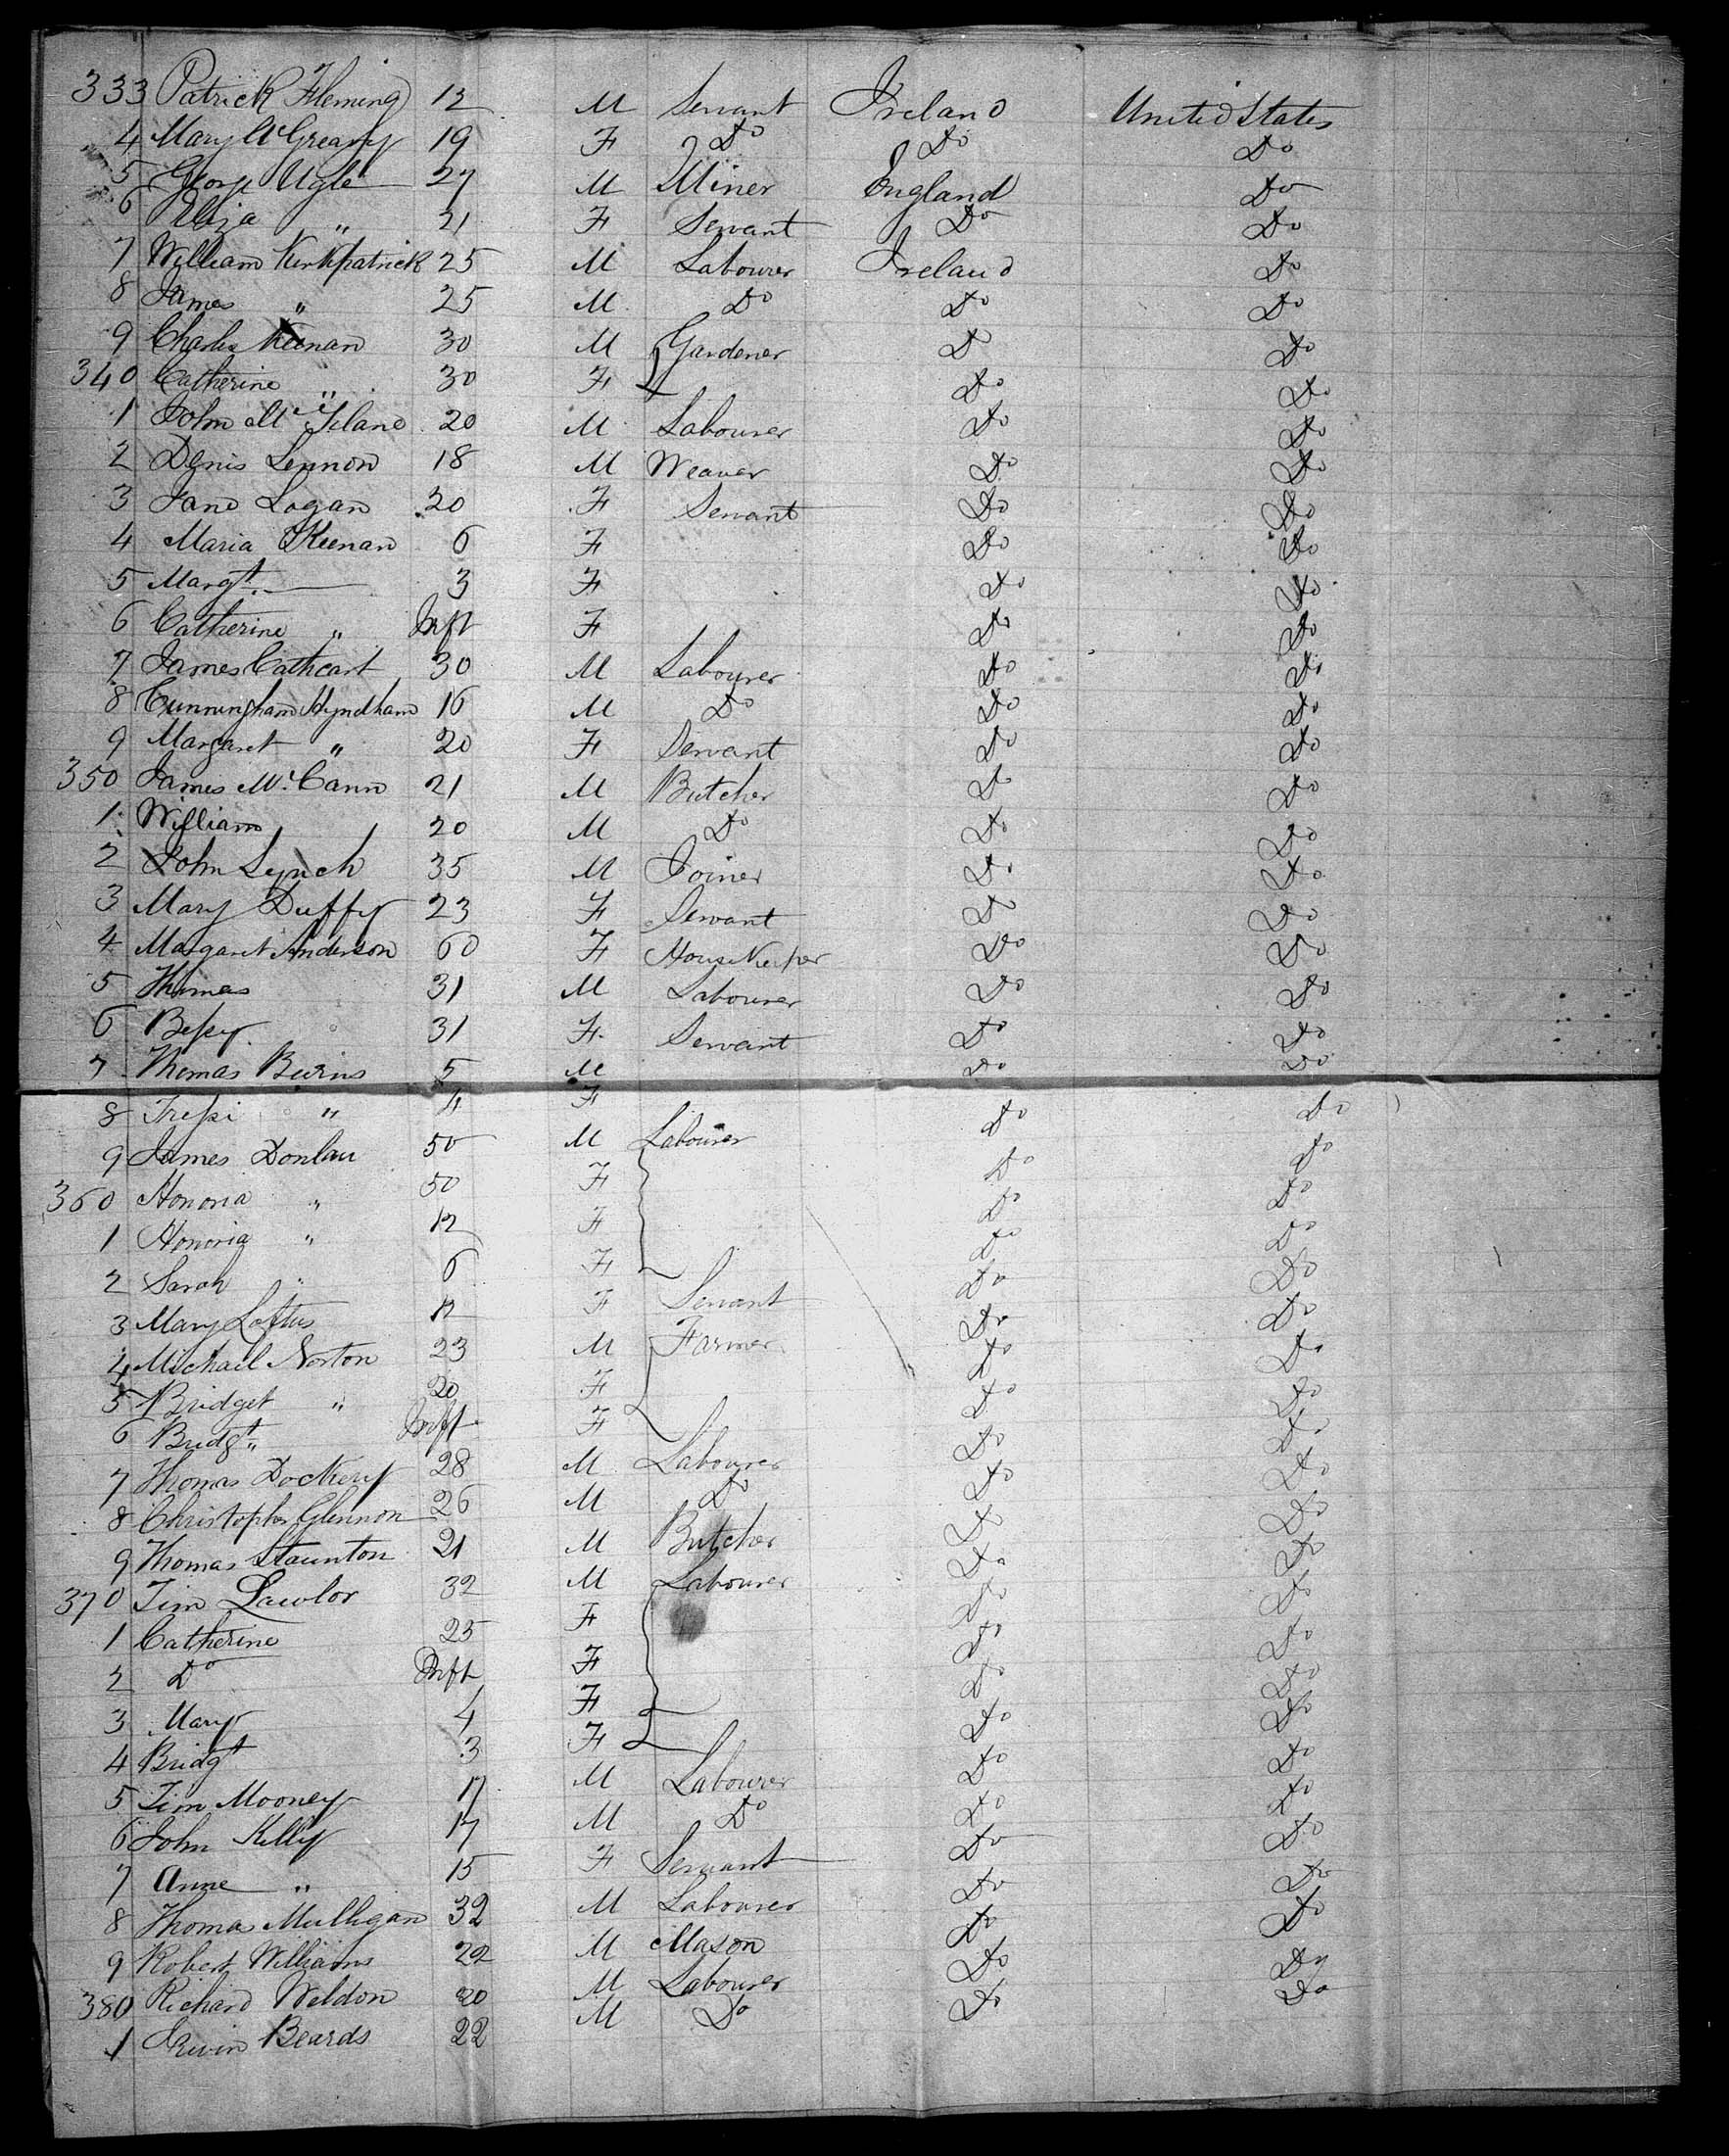 333 Patrick Fleming 12 M Servant Ireland United States
4 Mary McGreary 19 F Do Do Do
5 George Ugle 27 M Miner England Do
6 Eliza " 21 F Servant Do Do
7 William Kirkpatrick 25 M Labourer Ireland Do
8 James " 25 M Do Do Do
9 Charles Keenan 30 M Gardener Do Do
340 Catherine " 30 F Do Do
1 John 20 M Labourer Do Do
2 Denis Lennon 18 M Weaver Do Do
3 Jane Logan 20 F Servant Do Do
4 Maria Keenan 6 F Do Do
5 Margt. — 3 F Do Do
6 Catherine " Inft F Do Do
7 James Cathcart 30 M Labourer Do Do
8 Cunningham Hyndham 16 M Do Do Do
9 Margaret " 20 F Servant Do Do
350 James McCann 21 M Butcher Do Do
1 William 20 M Do Do Do
2 John Lynch 35 M Joiner Do Do
3 Mary Duffy 23 F Servant Do Do
4 Margaret Anderson 60 F HouseKeeper Do Do
5 Thomas 31 M Labourer Do Do
6 Bessy 31 F Servant Do Do
7 Thomas Burns 5 M Do Do
8 " 4 F Do Do
9 James Donlan 50 M Labourer Do Do
360 Honoria " 50 F Do Do
1 Honoria " 12 F Do Do
2 Sarah " 6 F Do Do
3 Mary Loftus 12 F Servant Do Do
4 Michael Norton 23 M Farmer Do Do
5 Bridget " 20 F Do Do
6 Bridgt " Inft F Do Do
7 Thomas Dockery 28 M Labourer Do Do
8 Christopher Glennon 26 M Do Do Do
9 Thomas Staunton 21 M Butcher Do Do
370 Tim Lawlor 32 M Labourer Do Do
1 Catherine 25 F Do Do
2 Do Inft F Do Do
3 Mary 4 F Do Do
4 Bridgt 3 F Do Do
5 Tim Mooney 17 M Labourer Do Do
6 John Kelly 17 M Do Do Do
7 Anne " 15 F Servant Do Do
8 Thomas Mulligan 32 M Labourer Do Do
9 Robert Williams 22 M Mason Do Do
380 Richard Weldon 20 M Labourer Do Do
1 Beards 22 M Do Do Do